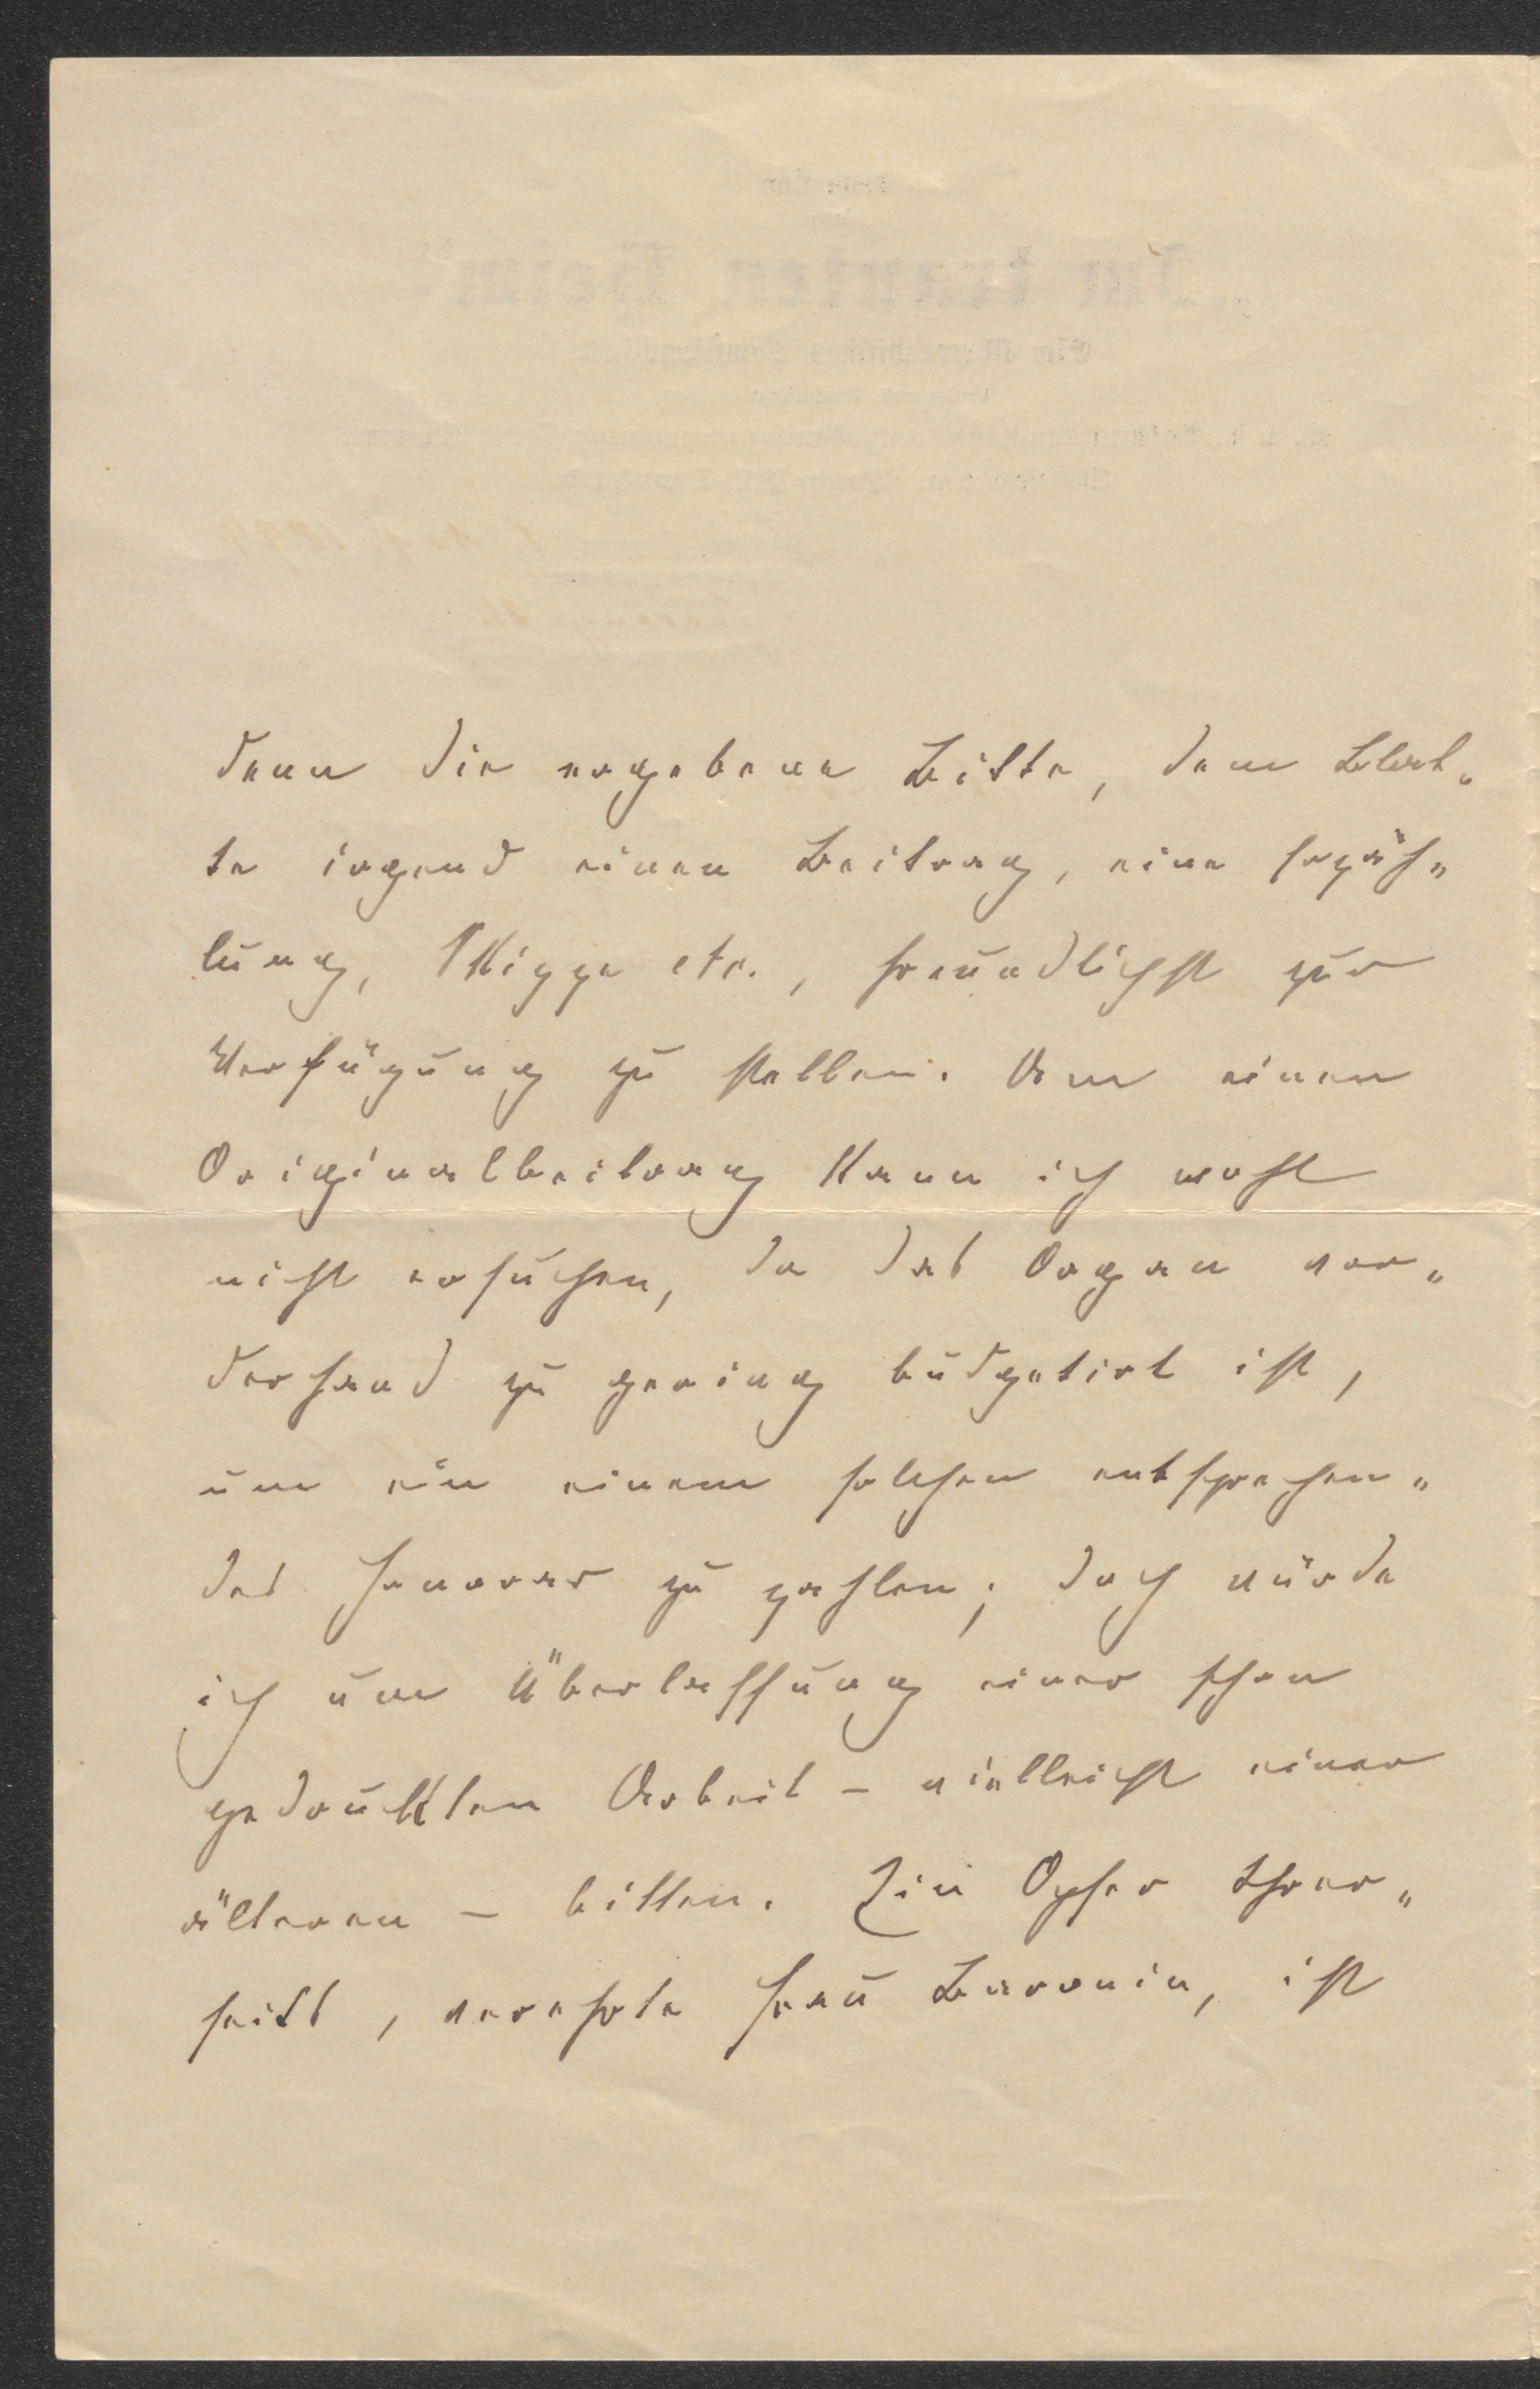 denn die ergebene Bitte, dem Blat„
te irgend einen Beitrag, eine Erzäh„
lung, Skizze etc., freundlichst zur
Verfügung zu stellen. Um einen
Originalbeitrag kann ich wohl
nicht ersuchen, da das Organ vor„
derhand zu gering budgetirt ist,
um ein einem solchen entsprechen„
des Honorar zu zahlen; doch würde
ich um Überlassung einer schon
gedruckten Arbeit – vielleicht einer
älteren – bitten. Ein Opfer Ihrer„
seits, verehrte Frau Baronin, ist